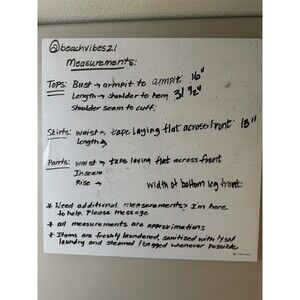 @beachvibes21
Measurements:
Tops: Bust → armpit to armpit: 16"
Length → shoulder to hem: 31 1/2"
Shoulder seam to cuff:
Skirts: waist → tape laying flat across front 13"
Length →
Pants: waist → tape laying flat across front
Inseam
Rise → width of bottom leg front:
* Need additional measurements? I'm here
to help. Please message
* all measurements are approximations
* Items are freshly laundered, sanitized with lysol
laundry and steamed / bagged whenever possible.